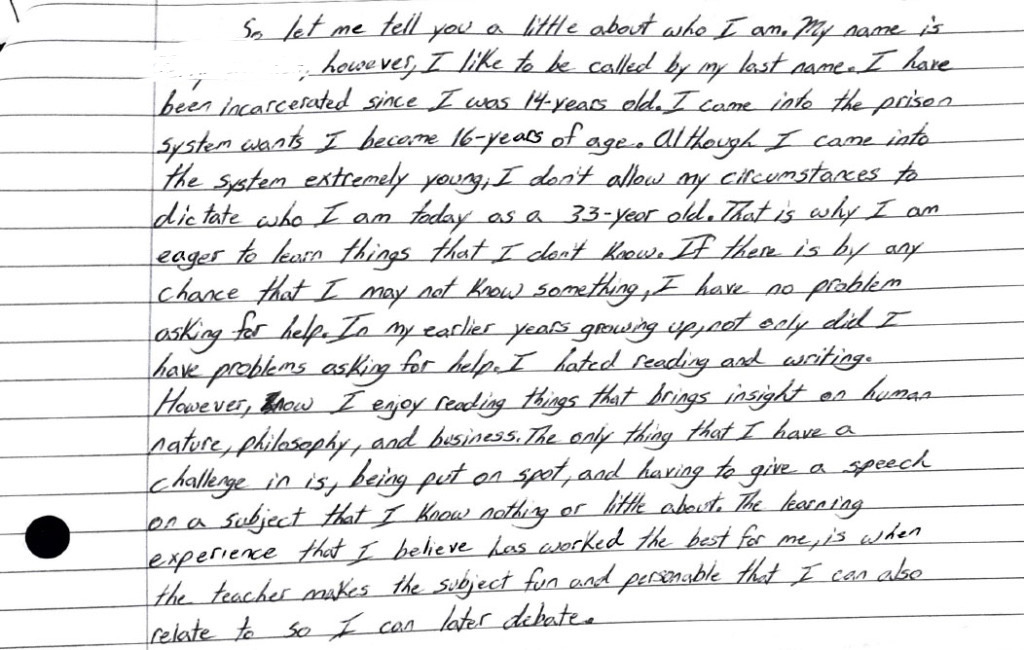 So let me tell you a little about who I am. My name is
, however, I like to be called by my last name. I have
been incarcerated since I was 14-years old. I came into the prison
system wants I became 16-years of age. Although I came into
the system extremely young, I don't allow my circumstances to
dictate who I am today as a 33-year old. That is why I am
eager to learn things that I don't know. If there is by any
chance that I may not know something, I have no problem
asking for help. In my earlier years growing up, not only did I
have problems asking for help. I hated reading and writing.
However, now I enjoy reading things that brings insight on human
nature, philosophy, and business. The only thing that I have a
challenge in is, being put on spot, and having to give a speech
on a subject that I know nothing or little about. The learning
experience that I believe has worked the best for me, is when
the teacher makes the subject fun and personable that I can also
relate to so I can later debate.